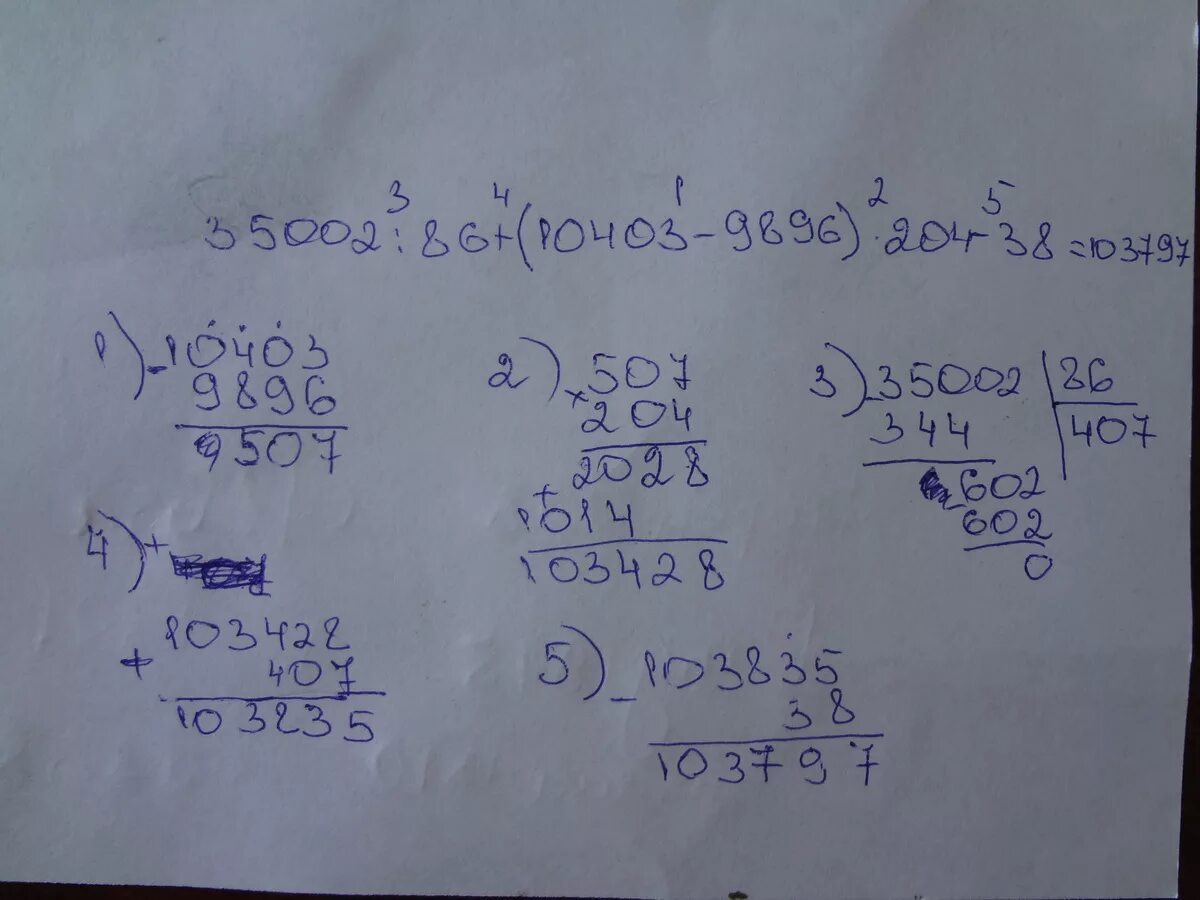 3 4 1 2 5
35002:86+(10403-9896)·204-38=103797
1) - 10403
9896
507
2) × 507
204
2028
+ 1014
103428
3) - 35002 | 86
344 | 407
- 602
602
0
4) +
103428
+ 407
103835
5) - 103835
38
103797